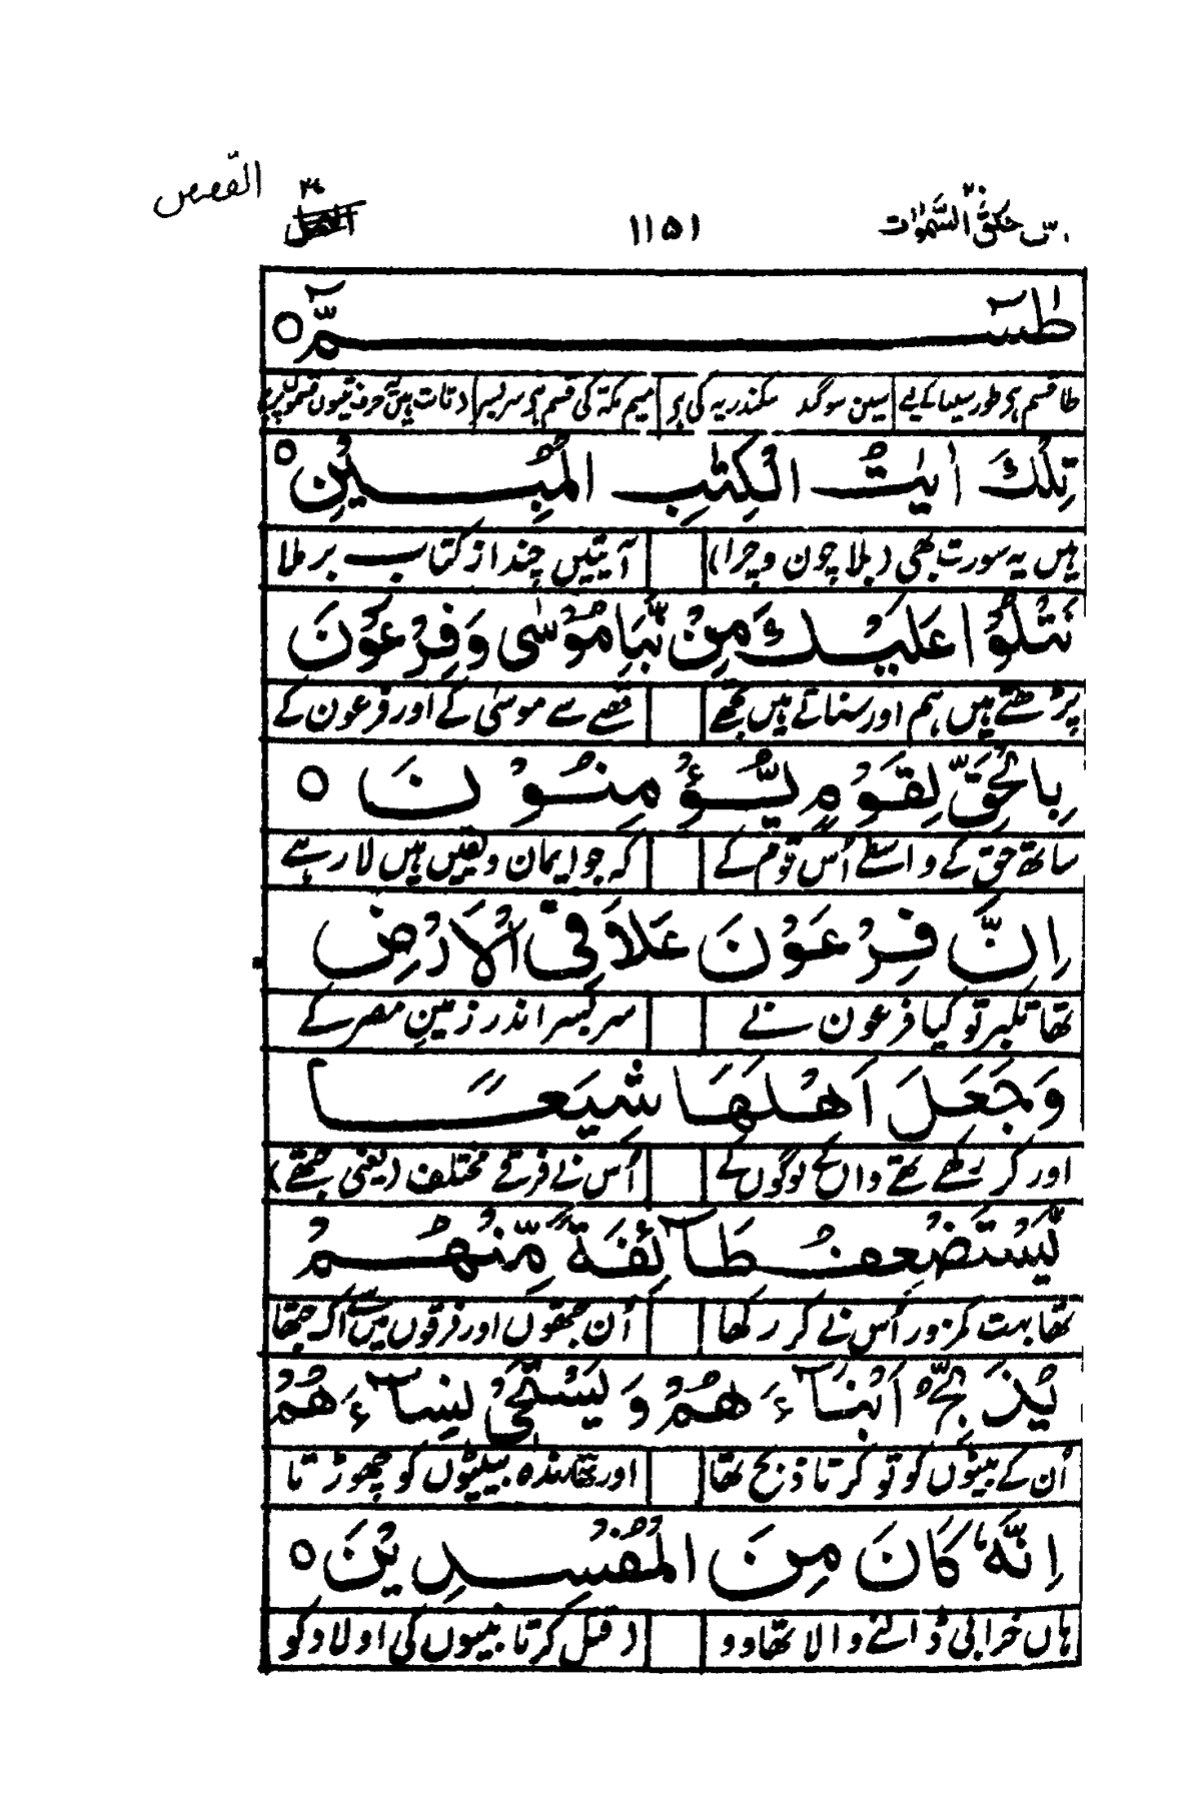 امّن خلق السّمٰوٰت ٢٠ ١١٥١ النمل القصص
طٰسٓـــــمّٓ ○
طا قسم ہر طور سینا کے لیے سین سوگند سکندریہ کی پر میم مکّۃ کی قسم ہر سربسر
تِلْكَ اٰیٰتُ الْكِتٰبِ الْمُبِیْنِ ○
ہیں یہ سورت بھی (بلا چون و چرا) آیتیں چند از کتاب بر ملا
نَتْلُوْا عَلَیْكَ مِنْ نَّبَاِ مُوْسٰی وَفِرْعَوْنَ
پڑھتے ہیں ہم اور سناتے ہیں تجھے قصّے سے موسٰی کے اور فرعون کے
بِالْحَقِّ لِقَوْمٍ یُّؤْمِنُوْنَ ○
ساتھ حق کے واسطے اُس قوم کے کہ جو ایمان و یقیں ہیں لا رہے
اِنَّ فِرْعَوْنَ عَلَا فِی الْاَرْضِ
تھا تکبر تو کیا فرعون نے سربسر اندر زمینِ مصر کے
وَجَعَلَ اَهْلَهَا شِیَعًا
اور کر رکھے تھے واں کے لوگوں کے اُس نے فرقے مختلف (یعنی جتھے)
یَّسْتَضْعِفُ طَآئِفَةً مِّنْهُمْ
تھا بہت کمزور اُس نے کر رکھا اُن جتھوں اور فرقوں میں سے اک جتھا
یُذَبِّحُ اَبْنَآءَهُمْ وَیَسْتَحْیٖ نِسَآءَهُمْ
اُن کے بیٹوں کو تو کرتا ذبح تھا اور تھا زندہ بیٹیوں کو چھوڑتا
اِنَّهٗ كَانَ مِنَ الْمُفْسِدِیْنَ ○
ہاں خرابی ڈالنے والا تھا وو (قتل کرتا بیٹوں کی اولاد کو